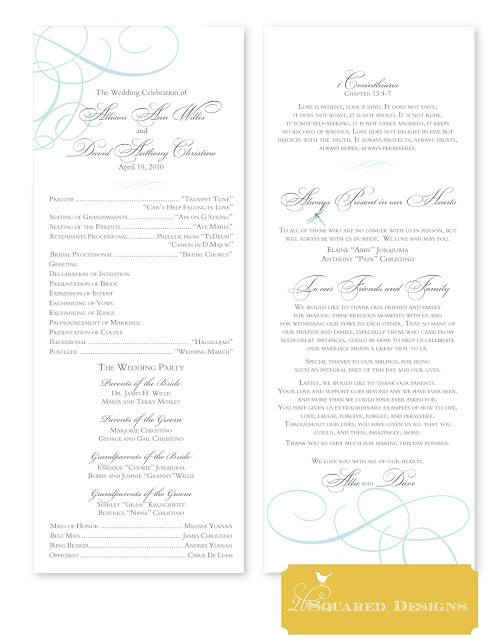 The Wedding Celebration of
Allison Ann Willis
and
David Anthony Christino
April 10, 2010
Prelude ... "Trumpet Tune"
"Can't Help Falling in Love"
Seating of Grandparents ... "Air on G String"
Seating of the Parents ... "Ave Maria"
Attendants Processional...Prelude from "TeDeum"
"Canon in D Major"
Bridal Processional ... "Bridal Chorus"
Greeting
Declaration of Intention
Presentation of Bride
Expression of Intent
Exchanging of Vows
Exchanging of Rings
Pronouncement of Marriage
Presentation of Couple
Recessional ... "Hallelujah"
Postlude ... "Wedding March"
The Wedding Party
Parents of the Bride
Dr. James H. Willis
Maria and Terry Mosley
Parents of the Groom
Marjorie Christino
George and Gail Christino
Grandparents of the Bride
Enrique "Cookie" Jorajuria
Bobby and Johnie "Granny" Willis
Grandparents of the Groom
Shirley "Gram" Kruschwitz
Beatrice "Nana" Christino
Maid of Honor ... Melissa Ylanan
Best Man ... James Christino
Ring Bearer ... Andres Ylanan
Officiant ... Chris De Luise
1 Corinthians
Chapter 13:4-7
Love is patient, love is kind. It does not envy,
it does not boast, it is not proud. It is not rude,
it is not self-seeking, it is not easily angered, it keeps
no record of wrongs. Love does not delight in evil but
rejoices with the truth. It always protects, always trusts,
always hopes, always perseveres.
Always Present in our Hearts
To all of those who are no longer with us in person, but
will always be with us in spirit. We love and miss you.
Elaine "Abby" Jorajuria
Anthony "Papa" Christino
To our Friends and Family
We would like to thank our friends and family
for sharing these precious moments with us and
for witnessing our vows to each other. That so many of
our friends and family, especially those who came from
such great distances, could be here to help us celebrate
our marriage means a great deal to us.
Special thanks to our siblings, for being
such an integral part of this day and our lives.
Lastly, we would like to thank our parents.
Your love and support goes beyond any we have ever seen,
and more than we could have ever asked for.
You have given us extraordinary examples of how to live,
love, laugh, forgive, forget, and persevere.
Throughout our lives, you have given us all that you
could, and then, amazingly, more.
Thank you so very much for making this day possible.
We love you with all of our hearts.
Allie and Dave
Squared Designs